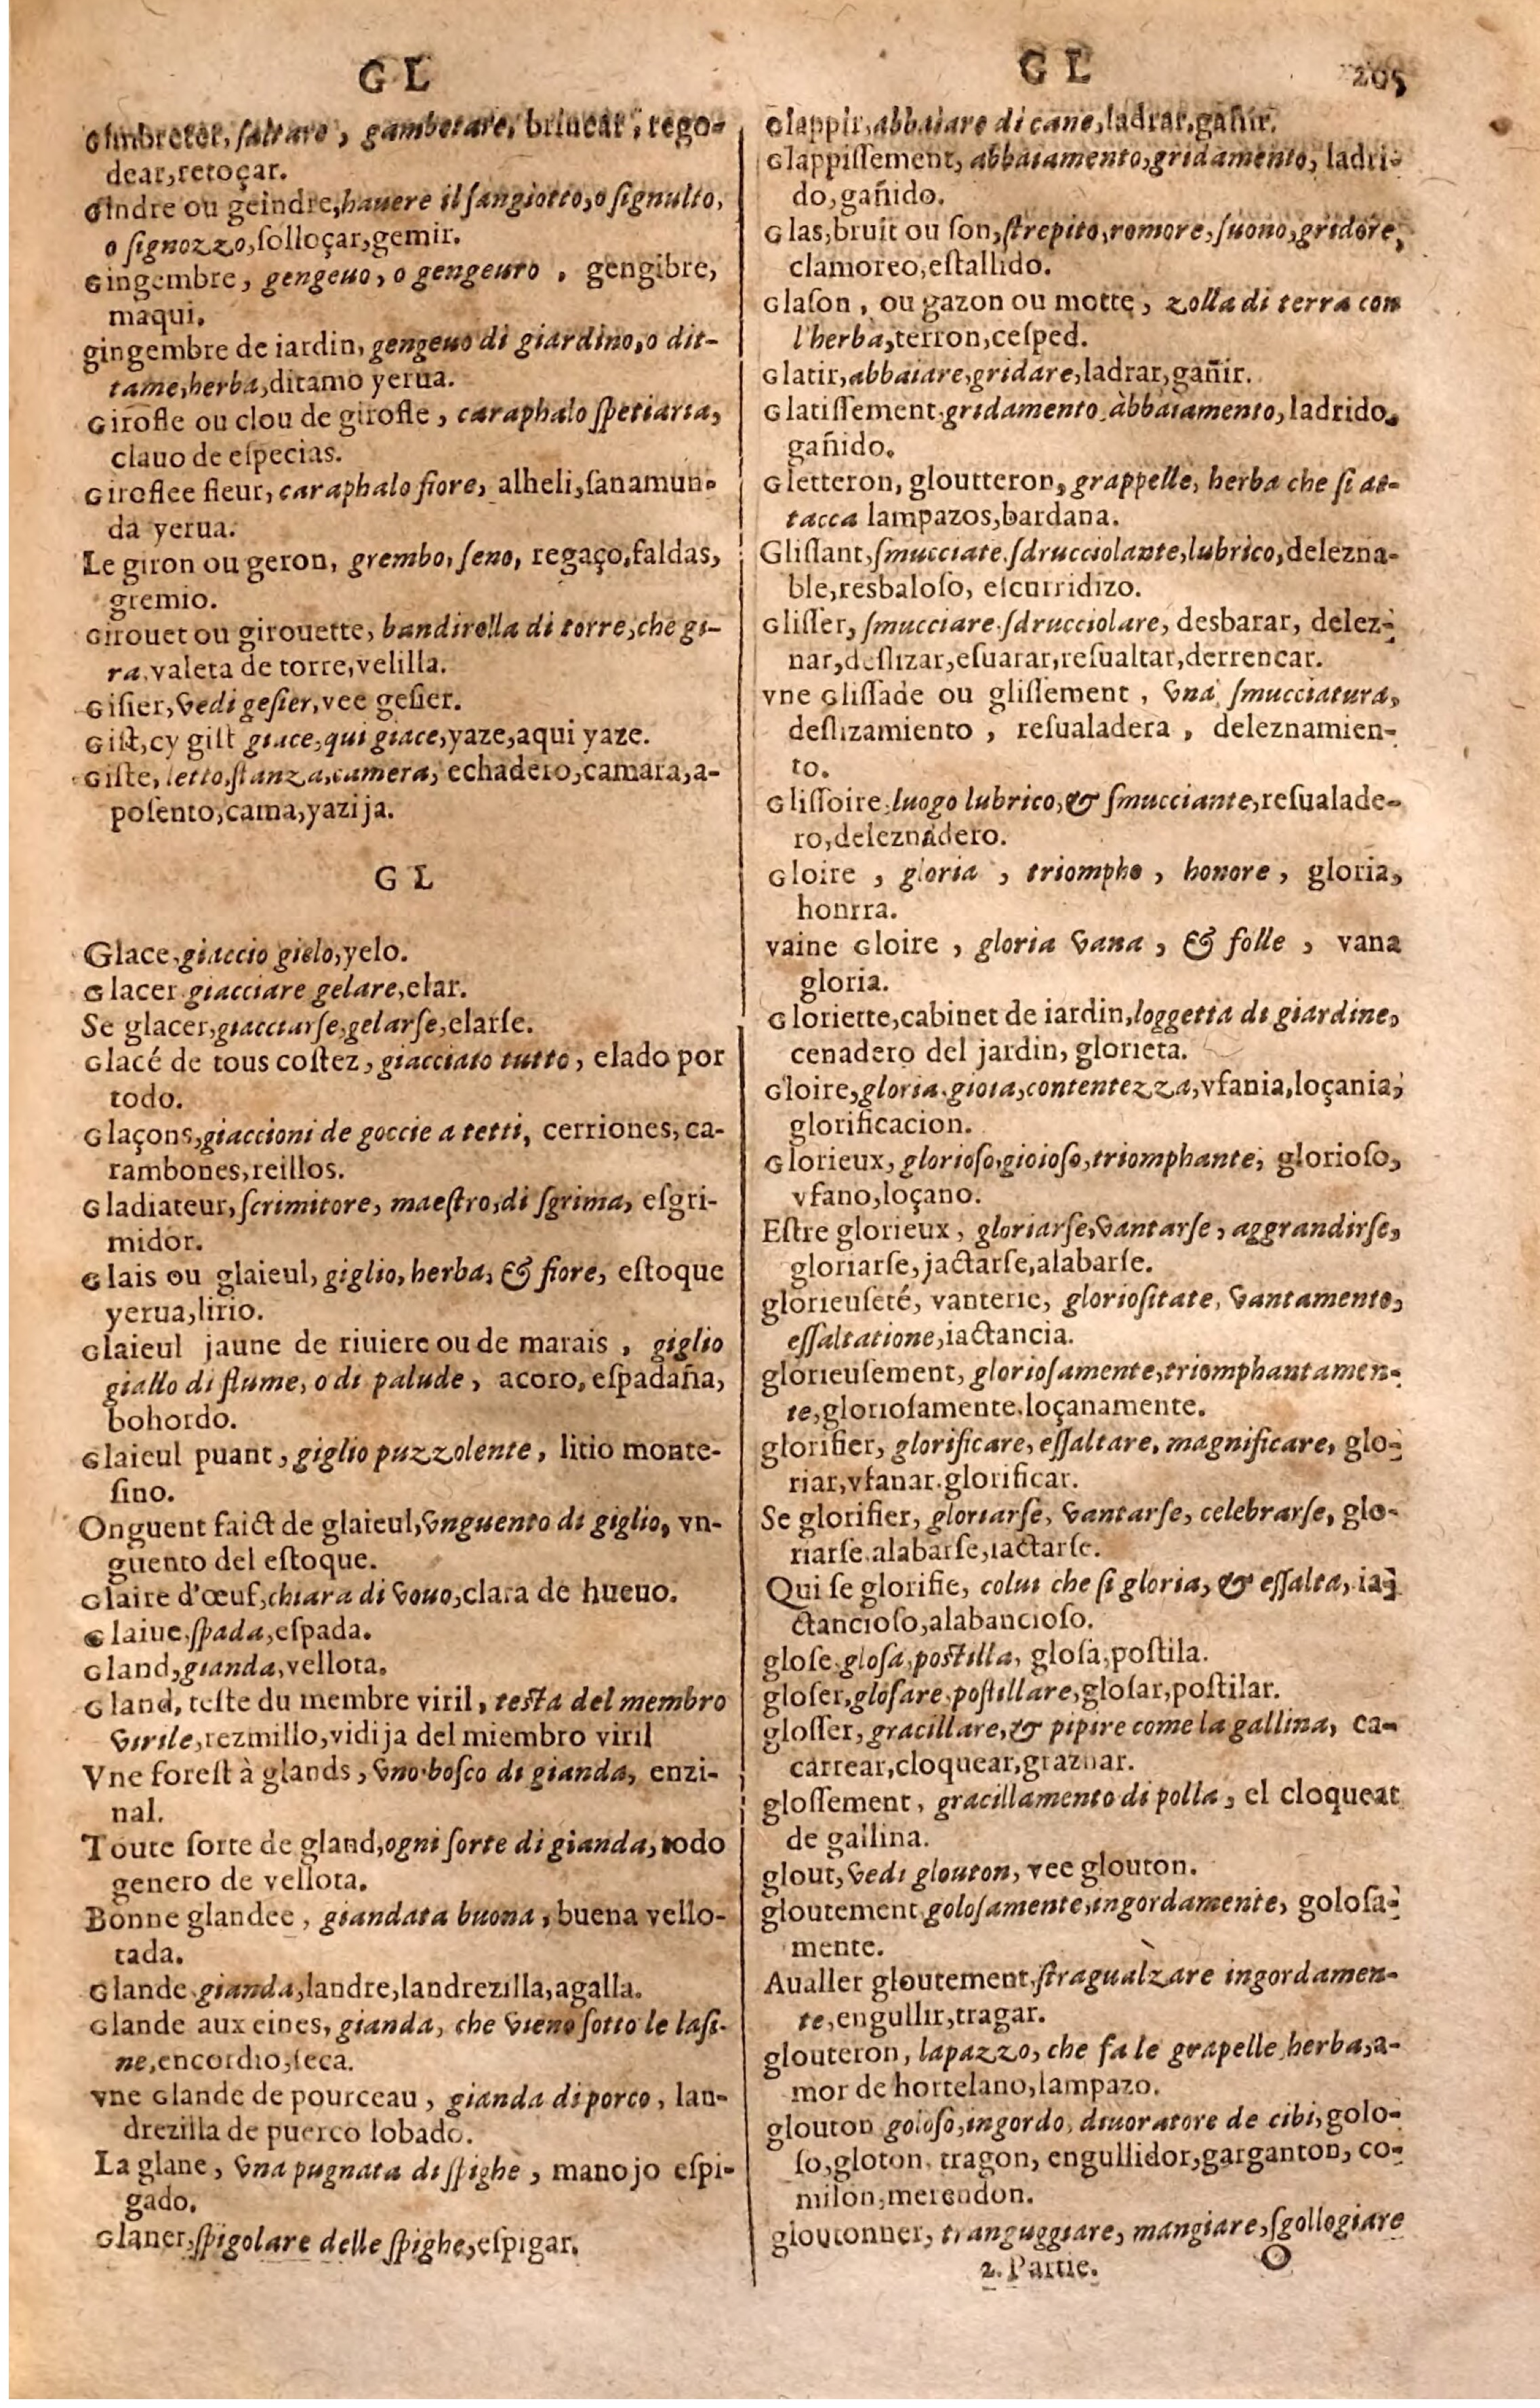 G L
Gimbreter, ſaltare, gambetare, brincar, rego-
dear, retoçar.
Gindre ou geindre, hauere il ſangiotto, o ſignulto,
o ſignozzo, ſolloçar, gemir.
Gingembre, gengeuo, o gengeuro, gengibre,
maqui.
gingembre de iardin, gengeuo di giardino, o dit-
tame, herba, ditamo yerua.
Girofle ou clou de girofle, caraphalo ſpetiaria,
clauo de eſpecias.
Giroflee fleur, caraphalo fiore, alheli, ſanamun-
da yerua.
Le giron ou geron, grembo, ſeno, regaço, faldas,
gremio.
Girouet ou girouette, bandirella di torre, che gi-
ra, valeta de torre, velilla.
Giſier, vedi geſier, vee geſier.
Giſt, cy giſt giace, qui giace, yaze, aqui yaze.
Giſte, letto, ſtanza, camera, echadero, camara, a-
poſento, cama, yazija.
G L
Glace, giaccio gielo, yelo.
Glacer giacciare gelare, elar.
Se glacer, giacciarſe, gelarſe, elarſe.
Glacé de tous coſtez, giacciato tutto, elado por
todo.
Glaçons, giaccioni de goccie a tetti, cerriones, ca-
rambones, reillos.
Gladiateur, ſcrimitore, maeſtro, di ſgrima, eſgri-
midor.
Glais ou glaieul, giglio, herba, & fiore, eſtoque
yerua, lirio.
Glaieul jaune de riuiere ou de marais, giglio
giallo di fiume, o di palude, acoro, eſpadaña,
bohordo.
Glaieul puant, giglio puzzolente, litio monte-
ſino.
Onguent faict de glaieul, vnguento di giglio, vn-
guento del eſtoque.
Glaire d'œuf, chiara di vouo, clara de hueuo.
Glaiue, ſpada, eſpada.
Gland, gianda, vellota.
Gland, teſte du membre viril, teſta del membro
virile, rezmillo, vidija del miembro viril
Vne foreſt à glands, vno boſco di gianda, enzi-
nal.
Toute ſorte de gland, ogni ſorte di gianda, todo
genero de vellota.
Bonne glandee, giandata buona, buena vello-
tada.
Glande gianda, landre, landrezilla, agalla.
Glande aux eines, gianda, che viene ſotto le laſi-
ne, encordio, ſeca.
vne Glande de pourceau, gianda di porco, lan-
drezilla de puerco lobado.
La glane, vna pugnata di ſpighe, manojo eſpi-
gado.
Glaner, ſpigolare delle ſpighe, eſpigar.
G L 205
Glappir, abbaiare di cane, ladrar, gañir.
Glappiſſement, abbaiamento, gridamento, ladri-
do, gañido.
Glas, bruit ou ſon, ſtrepito, romore, ſuono, gridore,
clamoreo, eſtallido.
Glaſon, ou gazon ou motte, zolla di terra con
l'herba, terron, ceſped.
Glatir, abbaiare, gridare, ladrar, gañir.
Glatiſſement, gridamento, abbaiamento, ladrido,
gañido.
Gletteron, gloutteron, grappelle, herba che ſi at-
tacca lampazos, bardana.
Gliſſant, ſmucciate, ſdrucciolante, lubrico, delezna-
ble, resbaloſo, eſcurridizo.
Gliſſer, ſmucciare, ſdrucciolare, desbarar, delez-
nar, deſlizar, eſuarar, reſualtar, derrencar.
vne Gliſſade ou gliſſement, vna ſmucciatura,
deſlizamiento, reſualadera, deleznamien-
to.
Gliſſoire, luogo lubrico, & ſmucciante, reſualade-
ro, deleznadero.
Gloire, gloria, triompho, honore, gloria,
honrra.
vaine Gloire, gloria vana, & folle, vana
gloria.
Gloriette, cabinet de iardin, loggetta di giardine,
cenadero del jardin, glorieta.
Gloire, gloria, gioia, contentezza, vfania, loçania,
glorificacion.
Glorieux, glorioſo, gioioſo, triomphante, glorioſo,
vfano, loçano.
Eſtre glorieux, gloriarſe, vantarſe, aggrandirſe,
gloriarſe, jactarſe, alabarſe.
glorieuſeté, vanterie, glorioſitate, vantamento,
eſſaltatione, iactancia.
glorieuſement, glorioſamente, triomphantamen-
te, glorioſamente, loçanamente.
glorifier, glorificare, eſſaltare, magnificare, glo-
riar, vfanar, glorificar.
Se glorifier, gloriarſe, vantarſe, celebrarſe, glo-
riarſe, alabarſe, iactarſe.
Qui ſe glorifie, colui che ſi gloria, & eſſalta, ia-
ctancioſo, alabancioſo.
gloſe, gloſa, poſtilla, gloſa, poſtila.
gloſer, gloſare, poſtillare, gloſar, poſtilar.
gloſſer, gracillare, & pipire come la gallina, ca-
carrear, cloquear, graznar.
gloſſement, gracillamento di polla, el cloquear
de gallina.
glout, vedi glouton, vee glouton.
gloutement goloſamente, ingordamente, goloſa-
mente.
Aualler gloutement, ſtragualzare ingordamen-
te, engullir, tragar.
glouteron, lapazzo, che fa le grapelle, herba, a-
mor de hortelano, lampazo.
glouton goloſo, ingordo, diuoratore de cibi, golo-
ſo, gloton, tragon, engullidor, garganton, co-
milon, merendon.
gloutonner, tranguggiare, mangiare, ſgollegiare
2. Partie. O